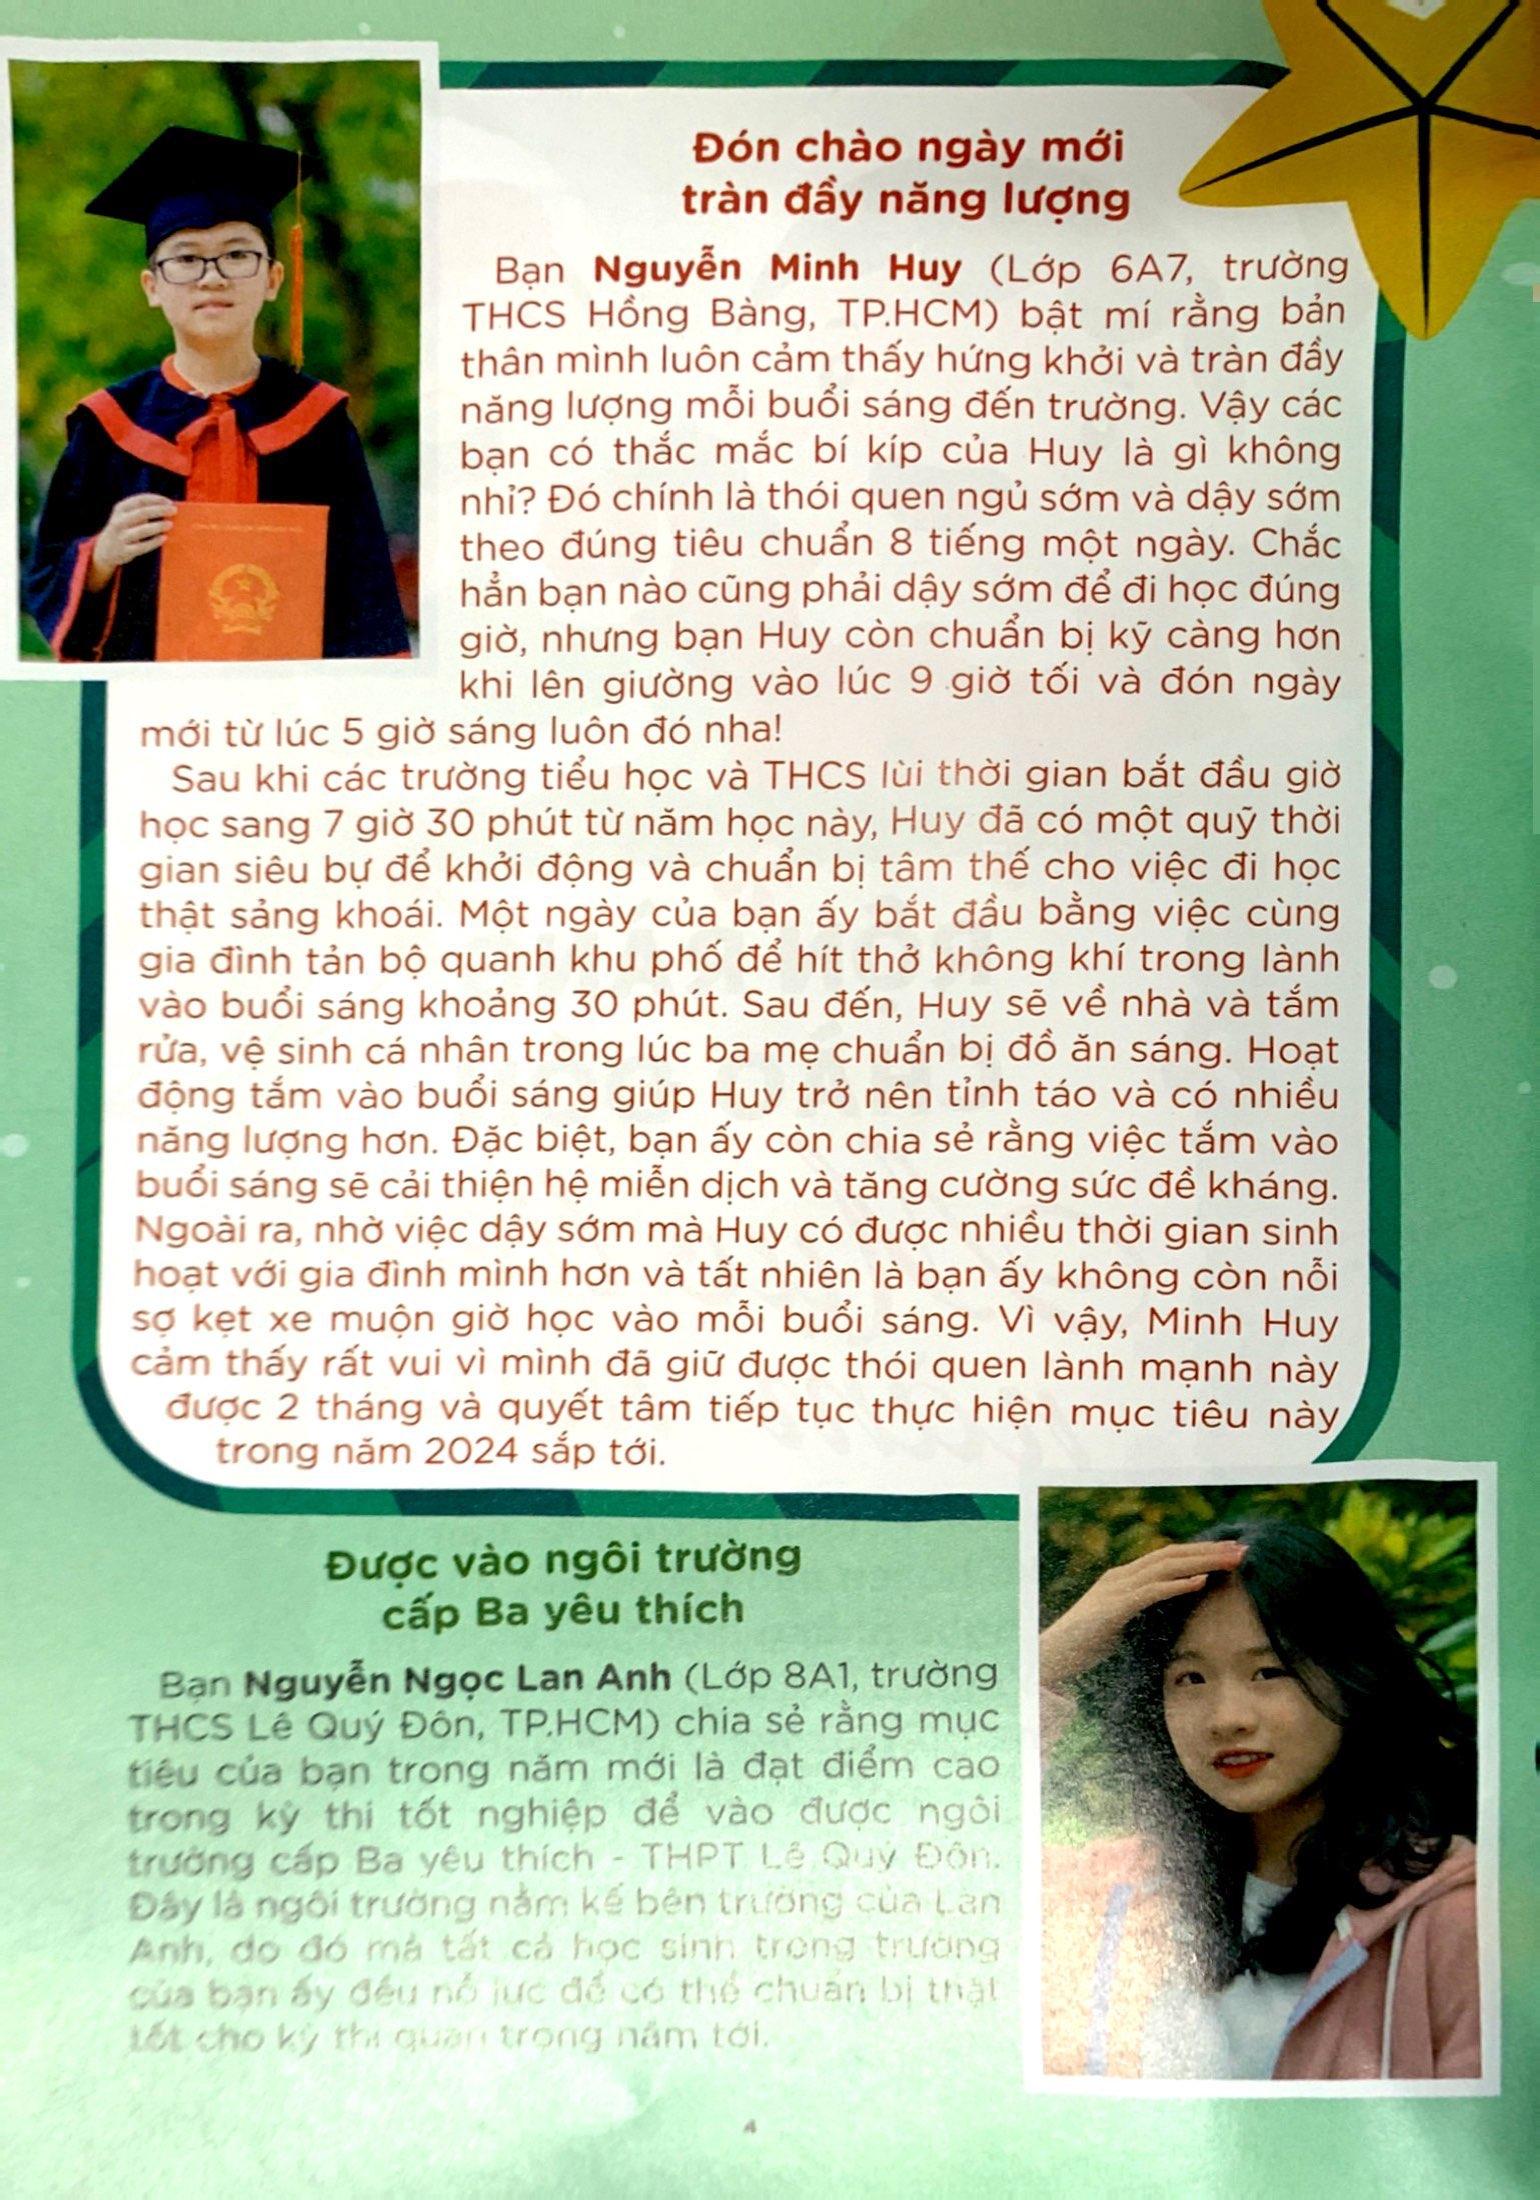 Đón chào ngày mới
tràn đầy năng lượng
Bạn Nguyễn Minh Huy (Lớp 6A7, trường
THCS Hồng Bàng, TP.HCM) bật mí rằng bản
thân mình luôn cảm thấy hứng khởi và tràn đầy
năng lượng mỗi buổi sáng đến trường. Vậy các
bạn có thắc mắc bí kíp của Huy là gì không
nhỉ? Đó chính là thói quen ngủ sớm và dậy sớm
theo đúng tiêu chuẩn 8 tiếng một ngày. Chắc
hẳn bạn nào cũng phải dậy sớm để đi học đúng
giờ, nhưng bạn Huy còn chuẩn bị kỹ càng hơn
khi lên giường vào lúc 9 giờ tối và đón ngày
mới từ lúc 5 giờ sáng luôn đó nha!
Sau khi các trường tiểu học và THCS lùi thời gian bắt đầu giờ
học sang 7 giờ 30 phút từ năm học này, Huy đã có một quỹ thời
gian siêu bự để khởi động và chuẩn bị tâm thế cho việc đi học
thật sảng khoái. Một ngày của bạn ấy bắt đầu bằng việc cùng
gia đình tản bộ quanh khu phố để hít thở không khí trong lành
vào buổi sáng khoảng 30 phút. Sau đến, Huy sẽ về nhà và tắm
rửa, vệ sinh cá nhân trong lúc ba mẹ chuẩn bị đồ ăn sáng. Hoạt
động tắm vào buổi sáng giúp Huy trở nên tỉnh táo và có nhiều
năng lượng hơn. Đặc biệt, bạn ấy còn chia sẻ rằng việc tắm vào
buổi sáng sẽ cải thiện hệ miễn dịch và tăng cường sức đề kháng.
Ngoài ra, nhờ việc dậy sớm mà Huy có được nhiều thời gian sinh
hoạt với gia đình mình hơn và tất nhiên là bạn ấy không còn nỗi
sợ kẹt xe muộn giờ học vào mỗi buổi sáng. Vì vậy, Minh Huy
cảm thấy rất vui vì mình đã giữ được thói quen lành mạnh này
được 2 tháng và quyết tâm tiếp tục thực hiện mục tiêu này
trong năm 2024 sắp tới.
Được vào ngôi trường
cấp Ba yêu thích
Bạn Nguyễn Ngọc Lan Anh (Lớp 8A1, trường
THCS Lê Quý Đôn, TP.HCM) chia sẻ rằng mục
tiêu của bạn trong năm mới là đạt điểm cao
trong kỳ thi tốt nghiệp để vào được ngôi
trường cấp Ba yêu thích - THPT Lê Quý Đôn.
Đây là ngôi trường nằm kế bên trường của Lan
Anh, do đó mà tất cả học sinh trong trường
của bạn ấy đều nỗ lực để có thể chuẩn bị thật
tốt cho kỳ thi quan trọng năm tới.
4